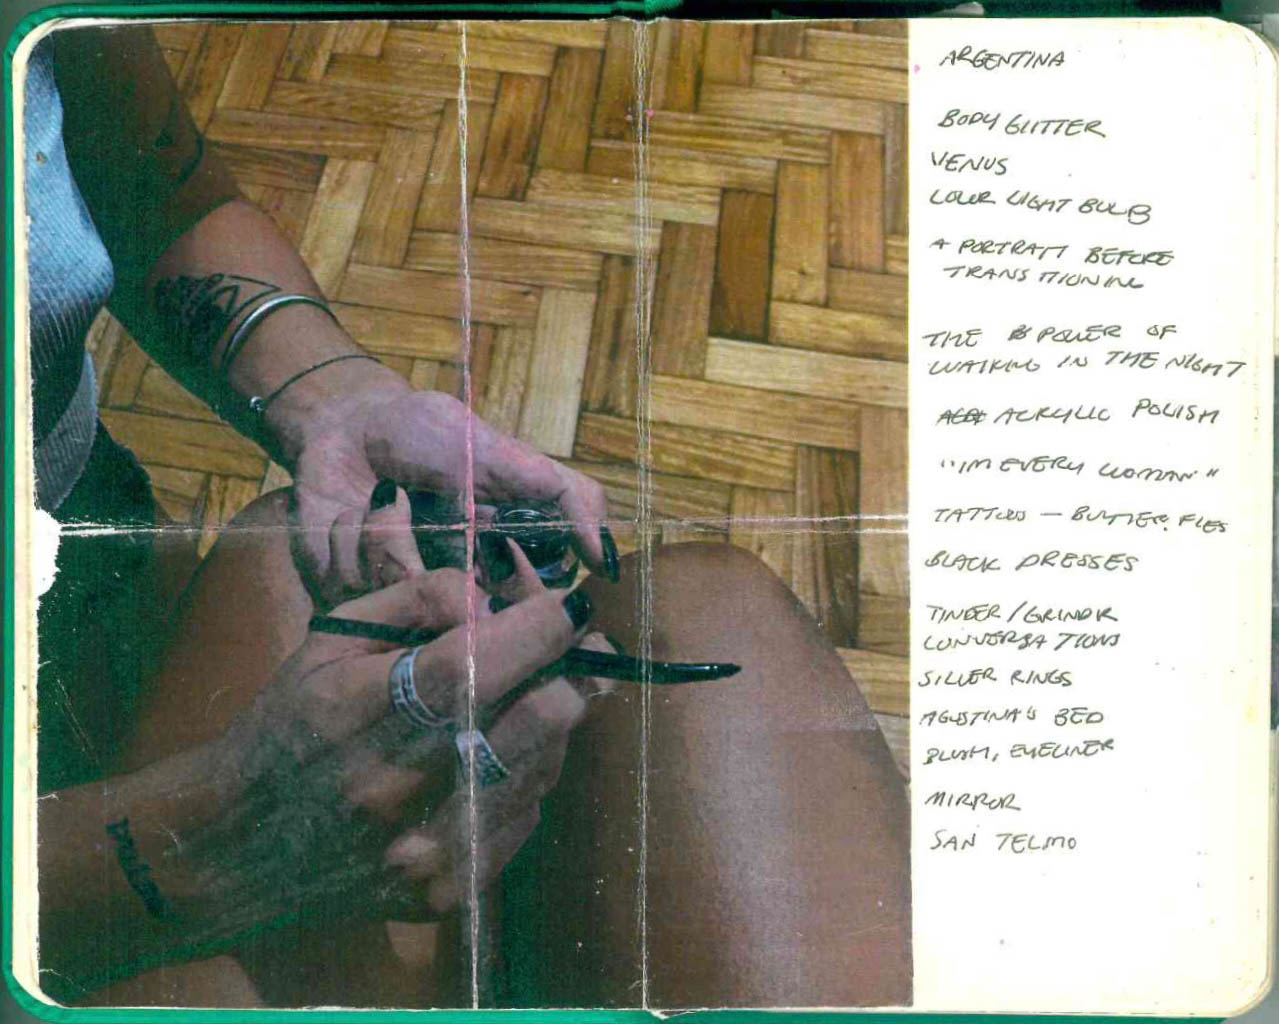 ARGENTINA
BODY GLITTER
VENUS
COLOR LIGHT BULB
A PORTRAIT BEFORE
TRANSITIONING
THE POWER OF
WALKING IN THE NIGHT
ACRYLIC POLISH
"IM EVERY WOMAN"
TATTOOS — BUTTERFLIES
BLACK DRESSES
TINDER/GRINDR
CONVERSATIONS
SILVER RINGS
AGUSTINA'S BED
BLUSH, EYELINER
MIRROR
SAN TELMO